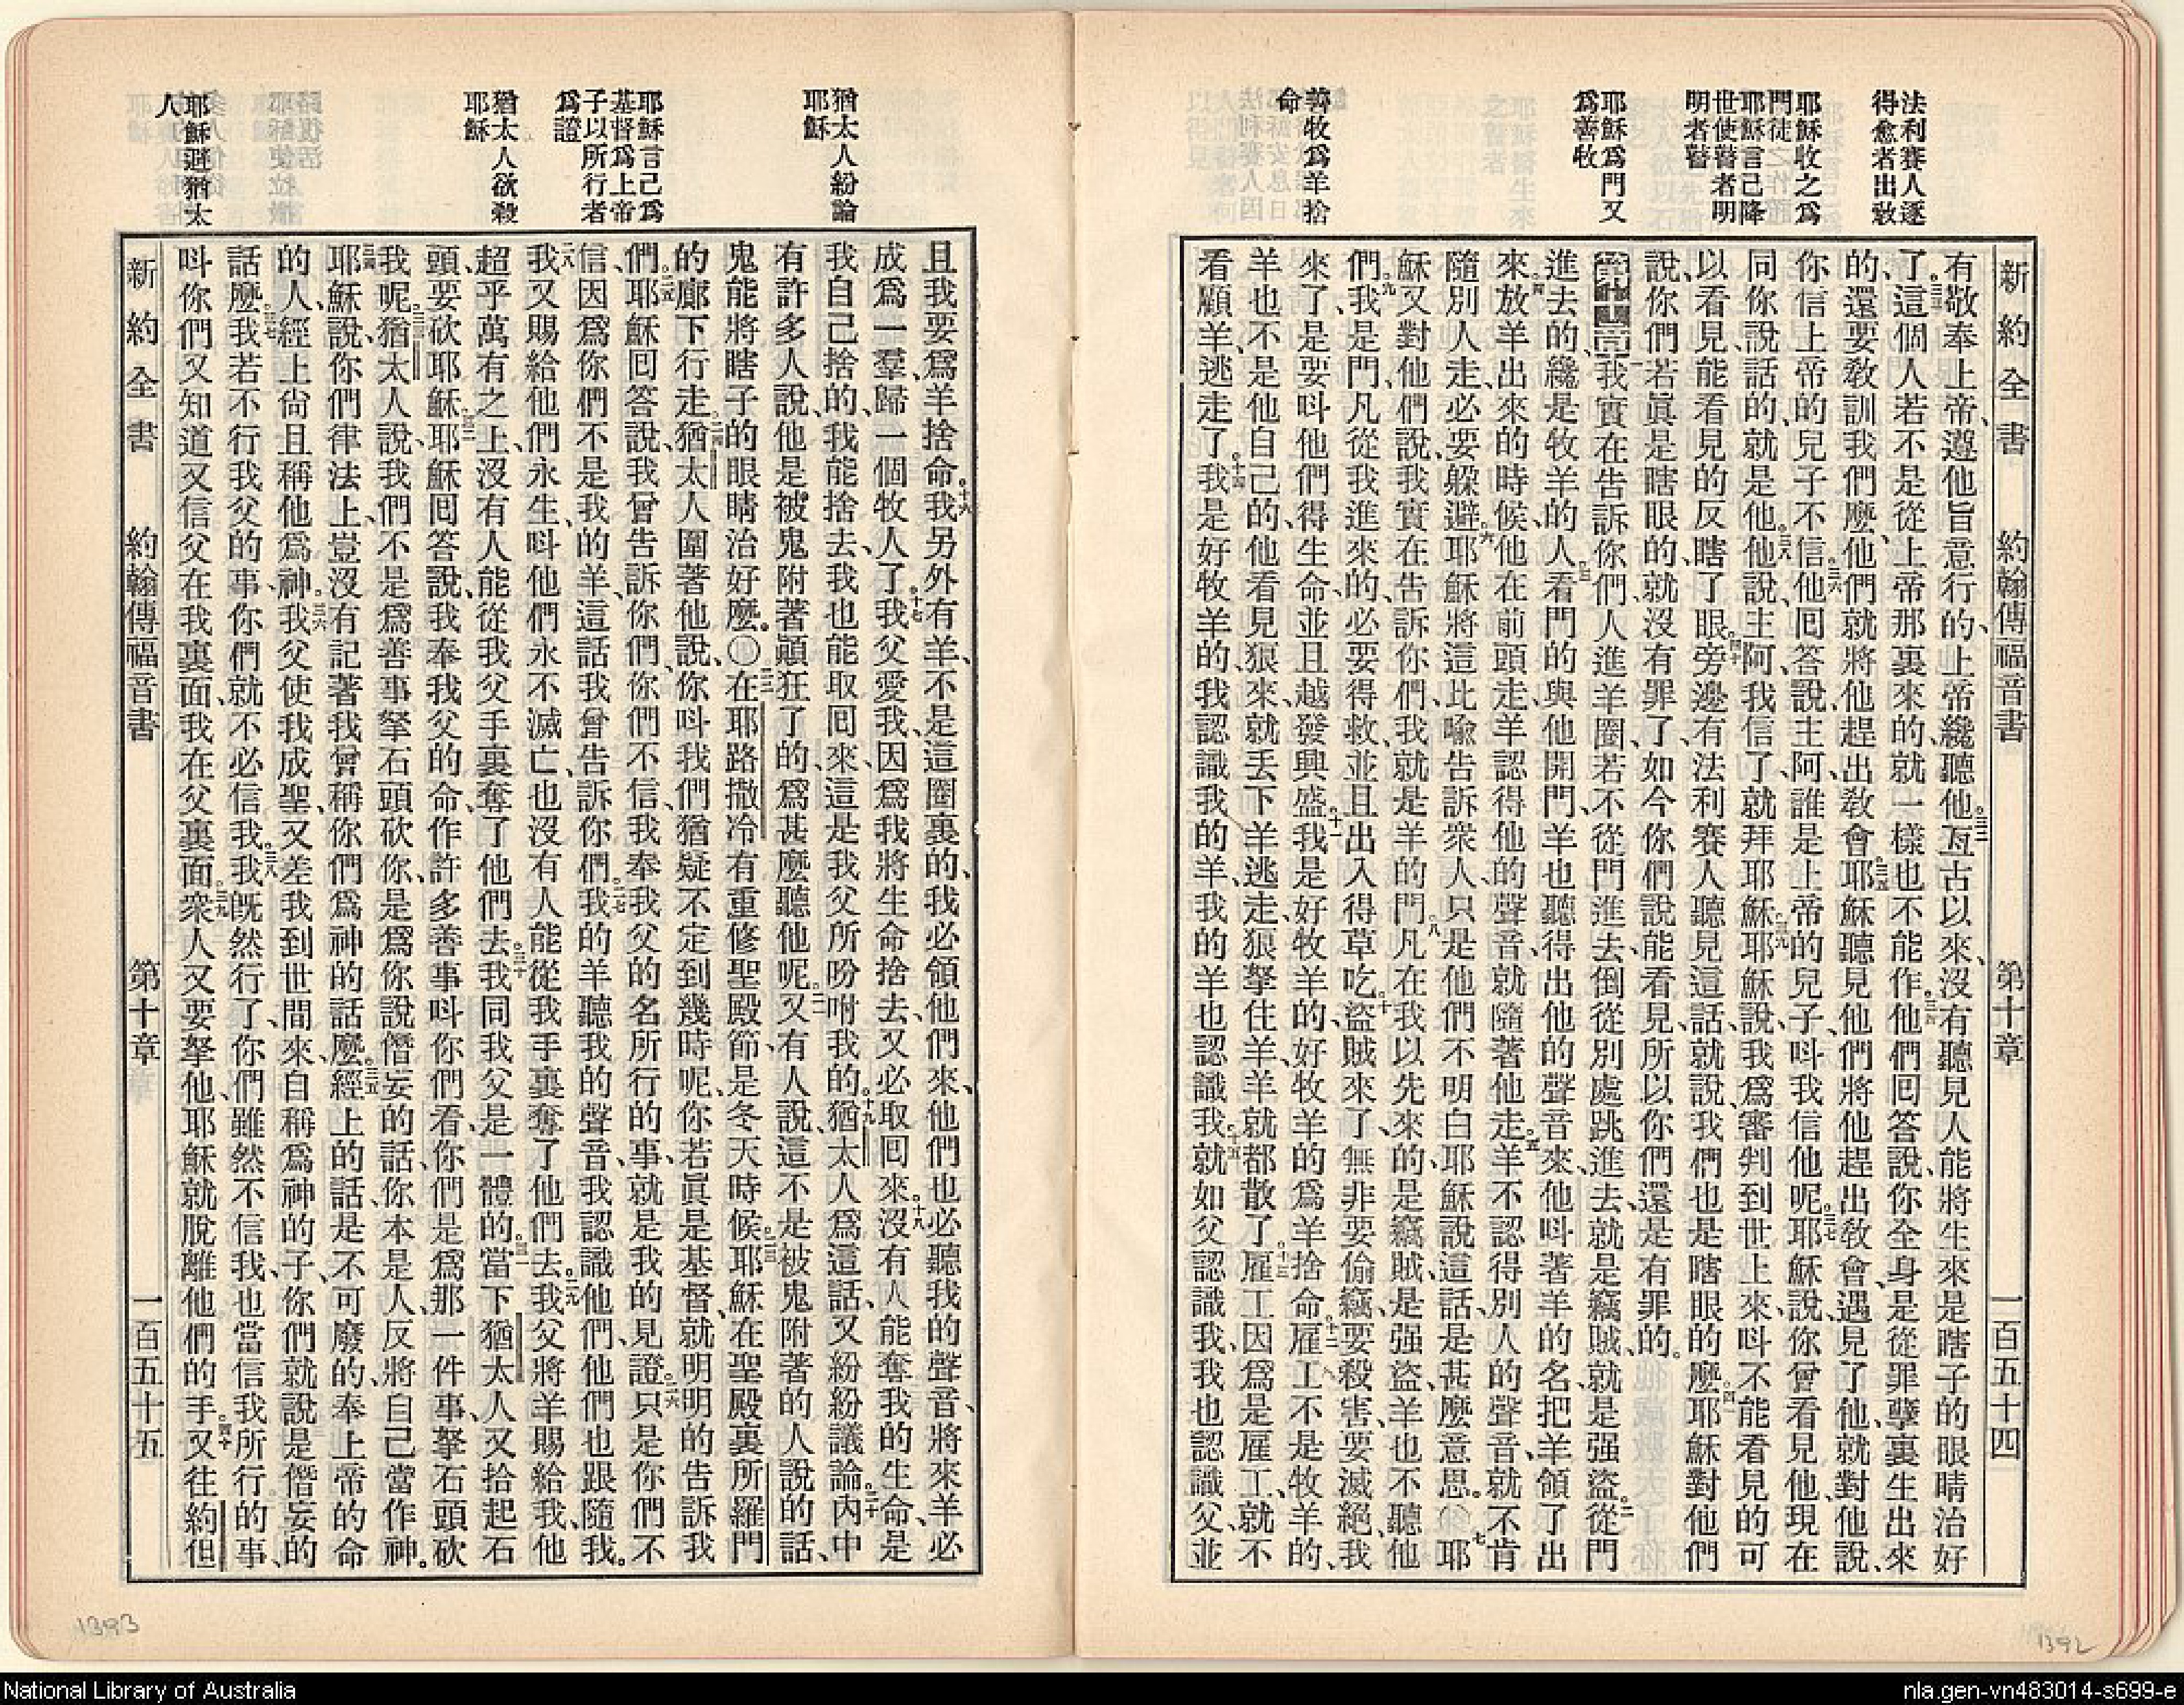 法利賽人逐
得愈者出教
耶穌收之爲
門徒
耶穌言己降
世使瞽者明
明者瞽
耶穌爲門又
爲善牧
善牧爲羊捨
命
新約全書 約翰傳福音書 第十章 一百五十四
有敬奉上帝、遵他旨意行的、上帝纔聽他。三二亙古以來、沒有聽見人能將生來是瞎子的眼睛治好
了。三三這個人若不是從上帝那裏來的、就一樣也不能作。三四他們囘答說、你全身是從罪孽裏生出來
的、還要敎訓我們麼、他們就將他趕出敎會。三五耶穌聽見他們將他趕出敎會、遇見了他、就對他說、
你信上帝的兒子不信。三六他囘答說、主阿、誰是上帝的兒子、呌我信他呢。三七耶穌說、你曾看見他、現在
同你說話的、就是他。三八他說、主阿、我信了、就拜耶穌。三九耶穌說、我爲審判到世上來、呌不能看見的可
以看見、能看見的反瞎了眼。四十旁邊有法利賽人聽見這話、就說、我們也是瞎眼的麼。四一耶穌對他們
說、你們若眞是瞎眼的、就沒有罪了、如今你們說、能看見、所以你們還是有罪的。
第十章一我實在告訴你們、人進羊圈、若不從門進去、倒從別處跳進去、就是竊賊、就是强盜。二從門
進去的、纔是牧羊的人。三看門的與他開門、羊也聽得出他的聲音來、他呌著羊的名、把羊領了出
來。四放羊出來的時候、他在前頭走、羊認得他的聲音、就隨著他走。五羊不認得別人的聲音、就不肯
隨別人走、必要躱避。六耶穌將這比喩告訴衆人、只是他們不明白耶穌說這話是甚麼意思。七耶
穌又對他們說、我實在告訴你們、我就是羊的門。八凡在我以先來的、是竊賊、是强盜、羊也不聽他
們。九我是門、凡從我進來的、必要得救、並且出入得草吃。十盜賊來了、無非要偷竊、要殺害、要滅絕、我
來了、是要呌他們得生命、並且越發興盛。十一我是好牧羊的、好牧羊的爲羊捨命。十二雇工不是牧羊的、
羊也不是他自己的、他看見狼來、就丟下羊逃走、狼拏住羊、羊就都散了。十三雇工因爲是雇工、就不
看顧羊、逃走了。十四我是好牧羊的、我認識我的羊、我的羊也認識我。十五就如父認識我、我也認識父、並
猶太人紛論
耶穌
耶穌言己爲
基督爲上帝
子以所行者
爲證
猶太人欲殺
耶穌
耶穌避猶太
人
且我要爲羊捨命。十六我另外有羊、不是這圈裏的、我必領他們來、他們也必聽我的聲音、將來羊必
成爲一羣、歸一個牧人了。十七我父愛我、因爲我將生命捨去、又必取囘來。十八沒有人能奪我的生命、是
我自己捨的、我能捨去、我也能取囘來、這是我父所吩咐我的。十九猶太人爲這話、又紛紛議論。二十內中
有許多人說、他是被鬼附著、顚狂了的、爲甚麼聽他呢。二一又有人說、這不是被鬼附著的人說的話、
鬼能將瞎子的眼睛治好麼。〇二二在耶路撒冷有重修聖殿節、是冬天時候。二三耶穌在聖殿裏所羅門
的廊下行走。二四猶太人圍著他說、你呌我們猶疑不定到幾時呢、你若眞是基督、就明明的告訴我
們。二五耶穌囘答說、我曾告訴你們、你們不信、我奉我父的名所行的事、就是我的見證。二六只是你們不
信、因爲你們不是我的羊、這話我曾告訴你們。二七我的羊聽我的聲音、我認識他們、他們也跟隨我。
二八我又賜給他們永生、呌他們永不滅亡、也沒有人能從我手裏奪了他們去。二九我父將羊賜給我、他
超乎萬有之上、沒有人能從我父手裏奪了他們去。三十我同我父是一體的。三一當下猶太人又拾起石
頭、要砍耶穌。三二耶穌囘答說、我奉我父的命、作許多善事呌你們看、你們是爲那一件事、拏石頭砍
我呢。三三猶太人說、我們不是爲善事拏石頭砍你、是爲你說僭妄的話、你本是人、反將自己當作神。
三四耶穌說、你們律法上、豈沒有記著我曾稱你們爲神的話麼。三五經上的話是不可廢的、奉上帝的命
的人、經上尙且稱他爲神。三六我父使我成聖、又差我到世間來、自稱爲神的子、你們就說是僭妄的
話麼。三七我若不行我父的事、你們就不必信我。三八我旣然行了、你們雖然不信我、也當信我所行的事、
呌你們又知道又信父在我裏面、我在父裏面。三九衆人又要拏他、耶穌就脫離他們的手。四十又往約但
新約全書 約翰傳福音書 第十章 一百五十五
1393
1392
National Library of Australia
nla.gen-vn483014-s699-e